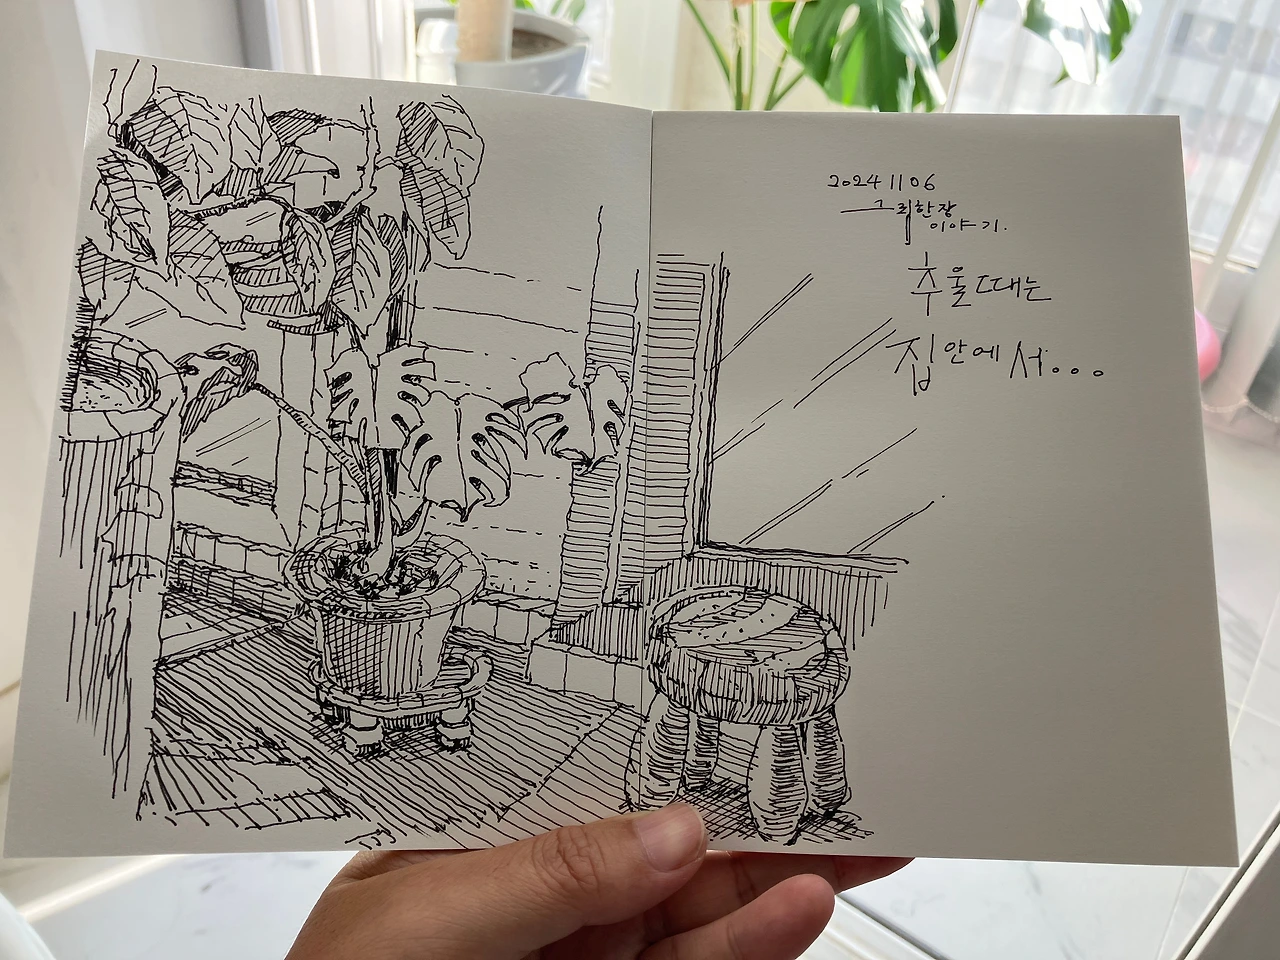 2024 11 06
그리한장
이야기.
추울때는
집안에서...